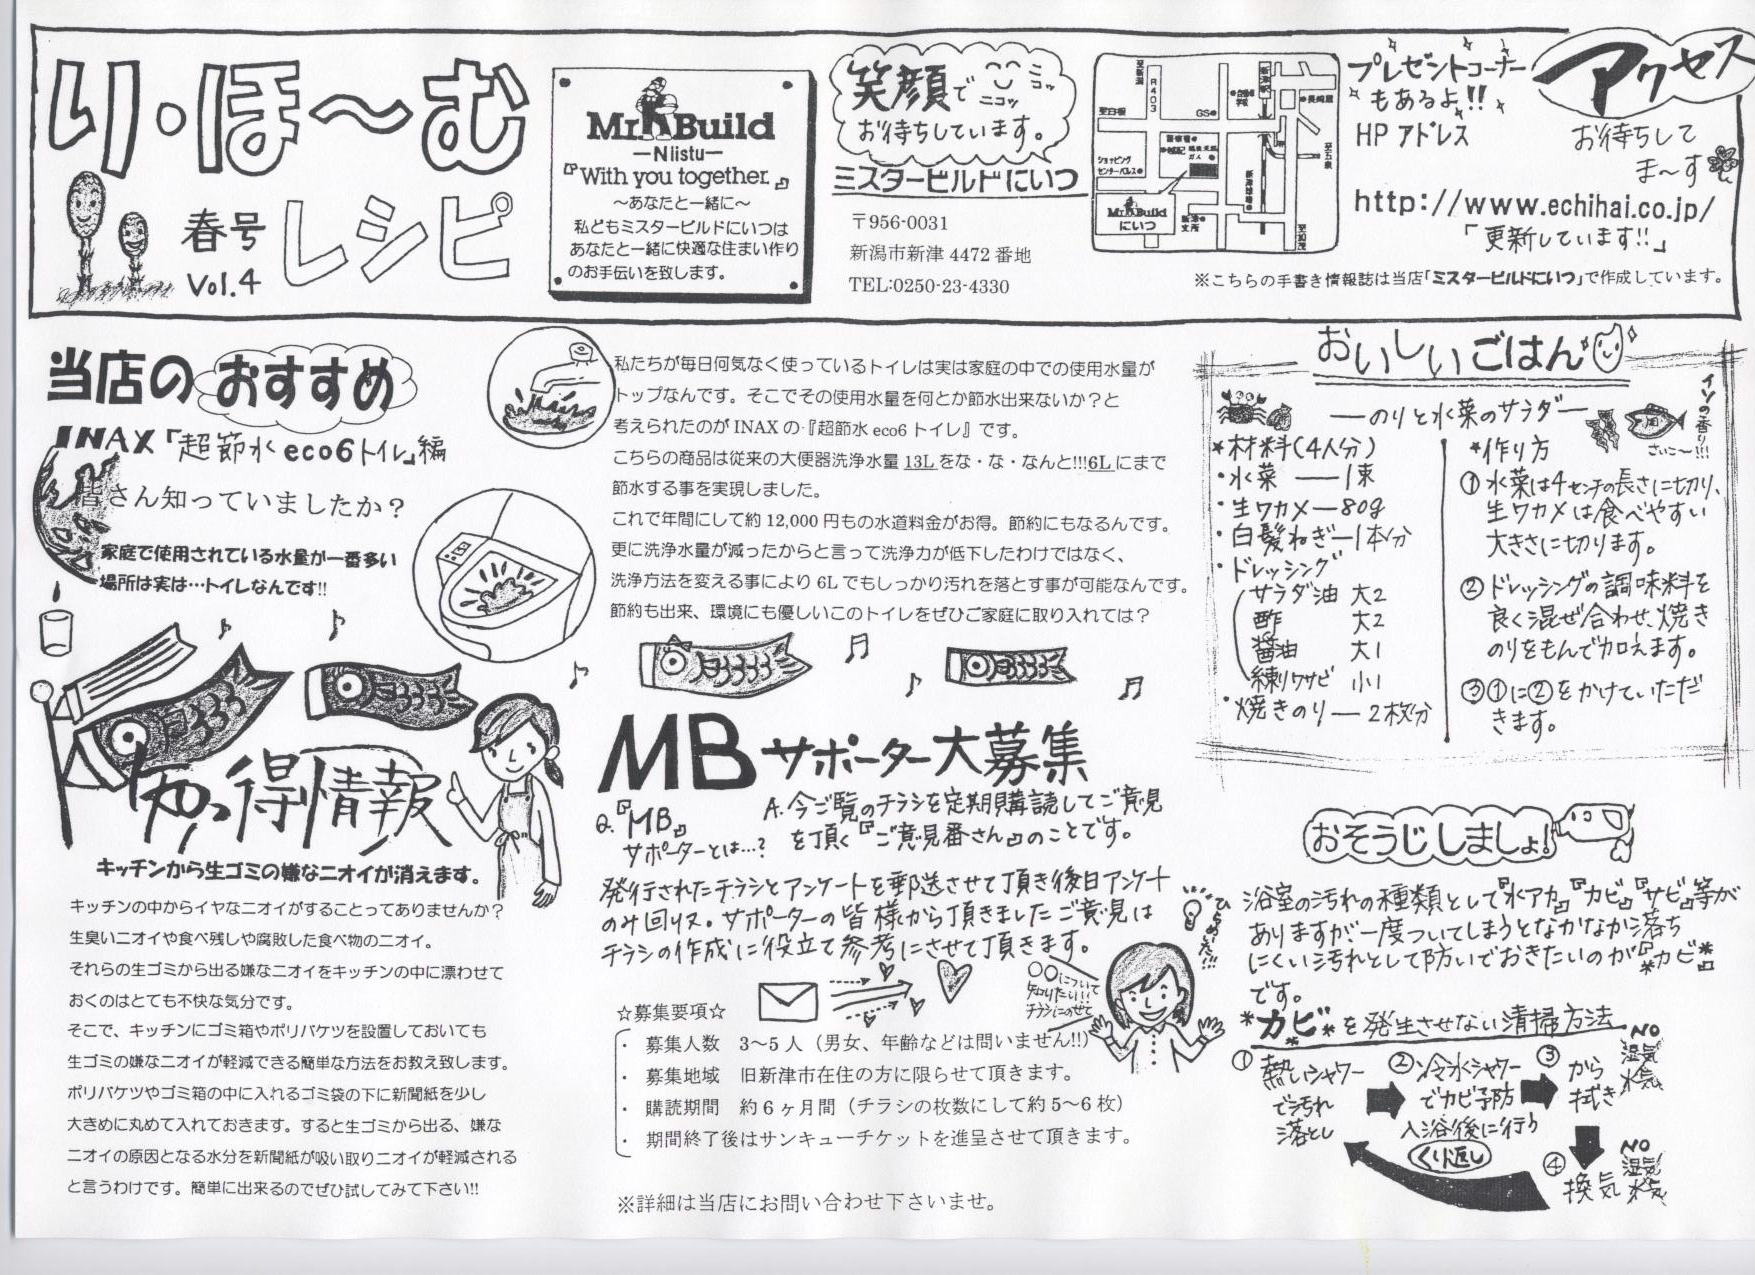 り・ほ～む
レシピ
春号
Vol.4
Mr Build
―NIistu―
『With you together.』
～あなたと一緒に～
私どもミスタービルドにいつは
あなたと一緒に快適な住まい作り
のお手伝いを致します。
笑顔で ニコッ ニコッ
お待ちしています。
ミスタービルドにいつ
〒956-0031
新潟市新津 4472 番地
TEL:0250-23-4330
至新潟
R403
至白根
GS
ショッピング
センターパレス
Mr Build
にいつ
プレゼントコーナー
もあるよ!!
アクセス
お待ちして
ま～す
HP アドレス
http://www.echihai.co.jp/
「更新しています!!」
※こちらの手書き情報誌は当店「ミスタービルドにいつ」で作成しています。
当店の おすすめ
INAX『超節水eco6トイレ』編
皆さん知っていましたか？
家庭で使用されている水量が一番多い
場所は実は…トイレなんです!!
私たちが毎日何気なく使っているトイレは実は家庭の中での使用水量が
トップなんです。そこでその使用水量を何とか節水出来ないか？と
考えられたのが INAX の『超節水 eco6 トイレ』です。
こちらの商品は従来の大便器洗浄水量 13L をな・な・なんと!!!6L にまで
節水する事を実現しました。
これで年間にして約 12,000 円もの水道料金がお得。節約にもなるんです。
更に洗浄水量が減ったからと言って洗浄力が低下したわけではなく、
洗浄方法を変える事により 6L でもしっかり汚れを落とす事が可能なんです。
節約も出来、環境にも優しいこのトイレをぜひご家庭に取り入れては？
おいしいごはん
―のりと水菜のサラダ―
イソの香り!
さいこ～!!!
*材料(4人分)
・水菜 ― 1束
・生ワカメ―80g
・白髪ねぎ―1本分
・ドレッシング
サラダ油 大2
酢 大2
醤油 大1
練りワサビ 小1
・焼きのり― 2枚分
*作り方
①水菜は4センチの長さに切り、
生ワカメは食べやすい
大きさに切ります。
②ドレッシングの調味料を
良く混ぜ合わせ、焼き
のりをもんで加えます。
③①に②をかけていただ
きます。
知っ得情報
キッチンから生ゴミの嫌なニオイが消えます。
キッチンの中からイヤなニオイがすることってありませんか？
生臭いニオイや食べ残しや腐敗した食べ物のニオイ。
それらの生ゴミから出る嫌なニオイをキッチンの中に漂わせて
おくのはとても不快な気分です。
そこで、キッチンにゴミ箱やポリバケツを設置しておいても
生ゴミの嫌なニオイが軽減できる簡単な方法をお教え致します。
ポリバケツやゴミ箱の中に入れるゴミ袋の下に新聞紙を少し
大きめに丸めて入れておきます。すると生ゴミから出る、嫌な
ニオイの原因となる水分を新聞紙が吸い取りニオイが軽減される
と言うわけです。簡単に出来るのでぜひ試してみて下さい!!
MB サポーター大募集
Q.『MB』
サポーターとは…?
A.今ご覧のチラシを定期購読してご意見
を頂く『ご意見番さん』のことです。
発行されたチラシとアンケートを郵送させて頂き後日アンケート
のみ回収。サポーターの皆様から頂きましたご意見は
チラシの作成に役立て参考にさせて頂きます。
ひらめいた!!!
○○について
知りたい!!!
チラシにのせて
☆募集要項☆
・ 募集人数 3～5 人（男女、年齢などは問いません!!）
・ 募集地域 旧新津市在住の方に限らせて頂きます。
・ 購読期間 約 6 ヶ月間（チラシの枚数にして約 5～6 枚）
・ 期間終了後はサンキューチケットを進呈させて頂きます。
※詳細は当店にお問い合わせ下さいませ。
おそうじしましょ!
浴室の汚れの種類として『水アカ』『カビ』『サビ』等が
ありますが一度ついてしまうとなかなか落ち
にくい汚れとして防いでおきたいのが『*カビ*』
です。
*カビ*を発生させない清掃方法
①熱いシャワー
で汚れ
落とし
②冷水シャワー
でカビ予防
入浴後に行う
③から
拭き
NO
湿気
水気
④換気
NO
湿気
水気
くり返し